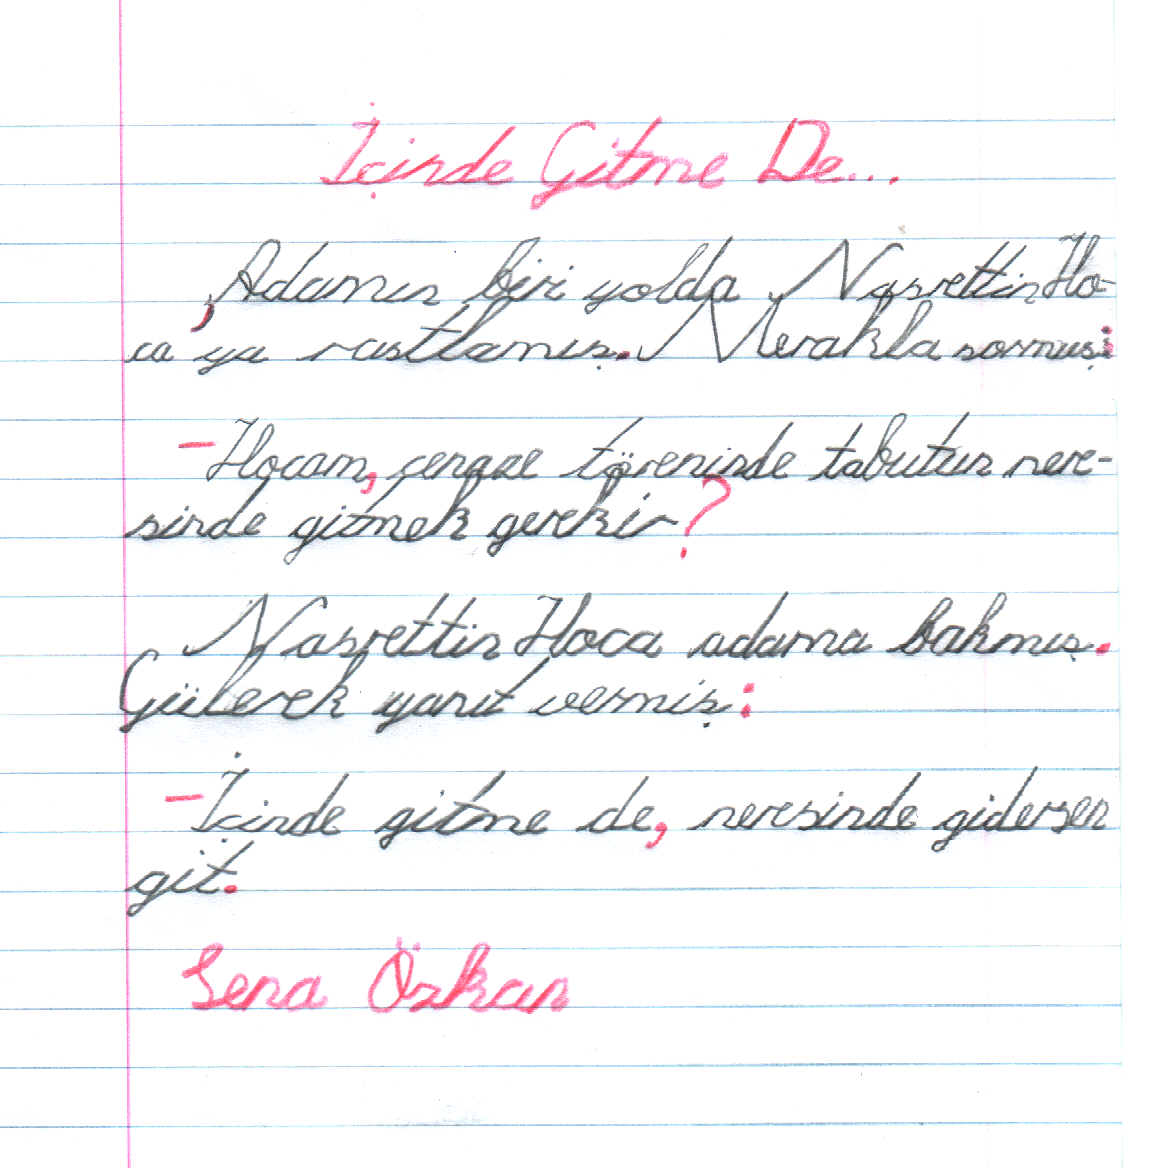 İçinde Gitme De...
Adamın biri yolda Nasrettin Ho-
ca'ya rastlamış. Merakla sormuş:
- Hocam, cenaze töreninde tabutun nere-
sinde gitmek gerekir?
Nasrettin Hoca adama bakmış.
Gülerek yanıt vermiş:
- İçinde gitme de, neresinde gidersen
git.
Sena Özkan